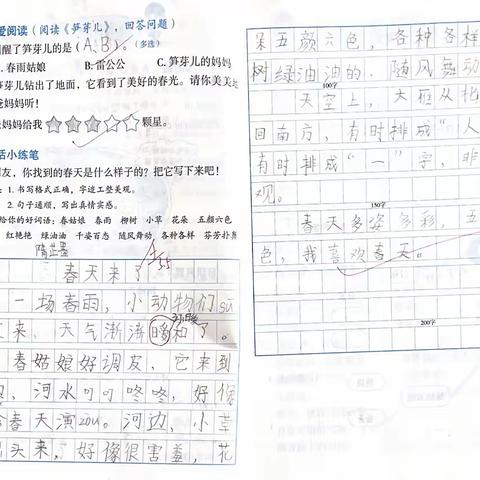 爱阅读（阅读《笋芽儿》，回答问题）
醒了笋芽儿的是（A、B）。（多选）
.春雨姑娘 B.雷公公 C.笋芽儿的妈妈
笋芽儿钻出了地面，它看到了美好的春光。请你美美
爸妈妈听！
妈妈给我 颗星。
话小练笔
友，你找到的春天是什么样子的？把它写下来吧！
：1. 书写格式正确，字迹工整美观。
2. 句子通顺，写出真情实感。
给你的好词语：春姑娘 春雨 柳树 小草 花朵 五颜六色
红艳艳 绿油油 千姿百态 随风舞动 各种各样 芬芳扑鼻
隋芷墨
春天来了
一场春雨，小动物们sū
来，天气渐渐暖和了。
春姑娘好调皮，它来到
，河水叮叮咚咚，好像
春天演zòu。河边，小草
出头来，好像很害羞，花
朵五颜六色，各种各样
树绿油油的，随风舞动
100字
天空上，大雁从北
回南方，有时排成“人
有时排成“一”字，非
观。
150字
春天多姿多彩，五
色，我喜欢春天。
200字